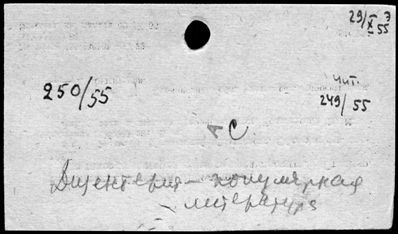 29/X 55
чит.
250/55
249/55
АС
Дизентерия – популярная
– литература